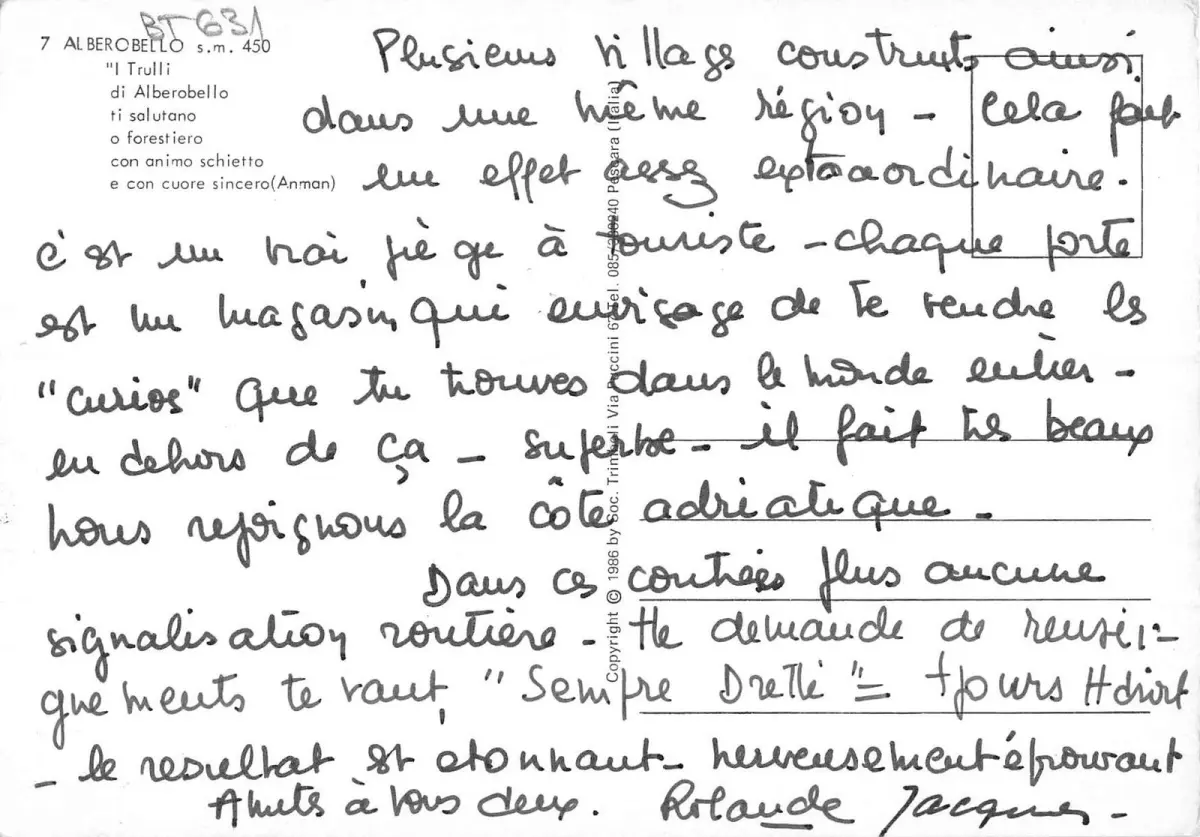 BT 631
7 ALBEROBELLO s.m. 450
"I Trulli
di Alberobello
ti salutano
o forestiero
con animo schietto
e con cuore sincero (Anman)
Plusieurs village construits ainsi
dans une même région - Cela fait
un effet assez extraordinaire.
C'est un vrai piège à touriste - chaque porte
est un magasin qui envisage de te vendre les
"curios" que tu trouves dans le monde entier -
en dehors de ça - superbe - il fait très beau
nous rejoignons la côte adriatique -
Dans ces contrées plus aucune
signalisation routière - 
demande de rensei-
gnements te vaut, "Sempre Dretti" = tjours tt droit
- le resultat est etonnant - nerveusement éprouvant
Amitiés à vous deux. Rolande Jacques -
Copyright © 1986 by Soc. Trimboli Via Puccini 67 Tel. 085/ Pescara (Italia)